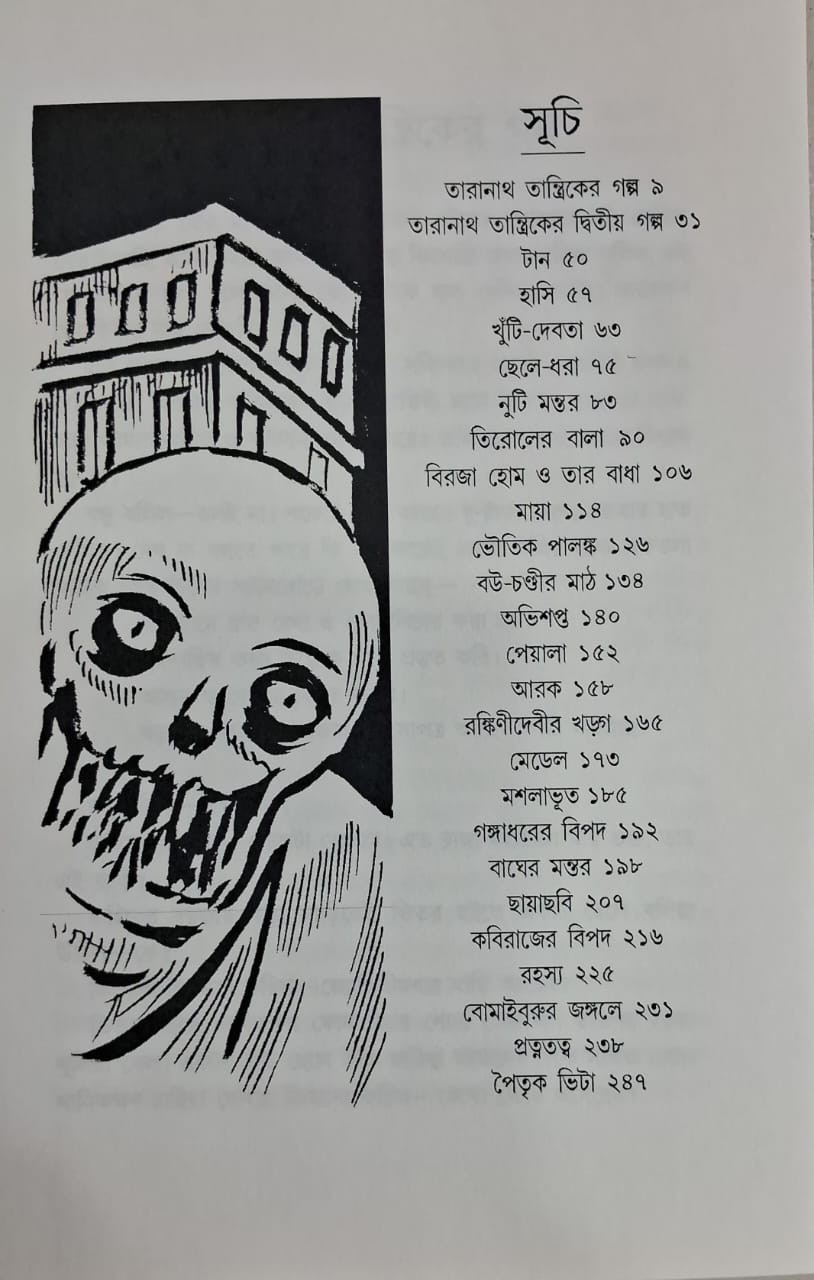 সূচি
তারানাথ তান্ত্রিকের গল্প ৯
তারানাথ তান্ত্রিকের দ্বিতীয় গল্প ৩১
টান ৫০
হাসি ৫৭
খুঁটি-দেবতা ৬৩
ছেলে-ধরা ৭৫
নুটি মন্তর ৮৩
তিরোলের বালা ৯০
বিরজা হোম ও তার বাধা ১০৬
মায়া ১১৪
ভৌতিক পালঙ্ক ১২৬
বউ-চণ্ডীর মাঠ ১৩৪
অভিশপ্ত ১৪০
পেয়ালা ১৫২
আরক ১৫৮
রঙ্কিণীদেবীর খড়্গ ১৬৫
মেডেল ১৭৩
মশলাভূত ১৮৫
গঙ্গাধরের বিপদ ১৯২
বাঘের মন্তর ১৯৮
ছায়াছবি ২০৭
কবিরাজের বিপদ ২১৬
রহস্য ২২৫
বোমাইবুরুর জঙ্গলে ২৩১
প্রত্নতত্ব ২৩৮
পৈতৃক ভিটা ২৪৭